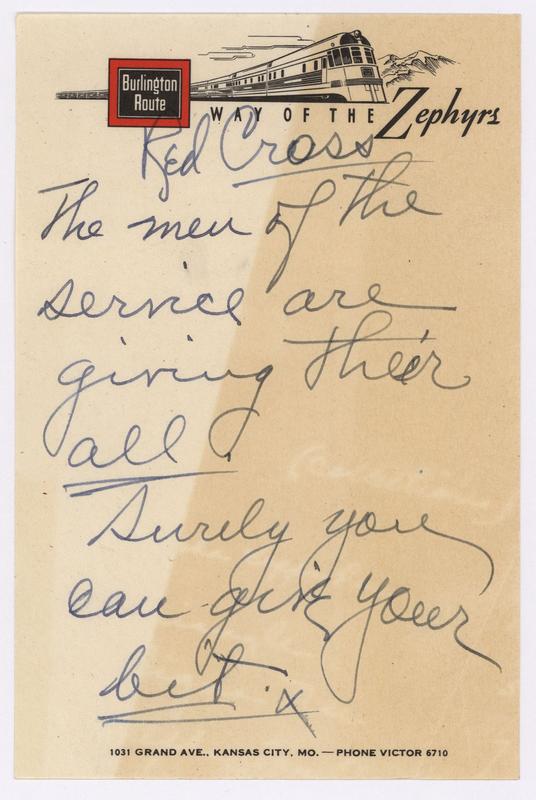 Burlington
Route
WAY OF THE Zephyrs
Red Cross
The men of the
service are
giving their
all.
Surely you
can give your
bit. x
1031 GRAND AVE., KANSAS CITY, MO. — PHONE VICTOR 6710